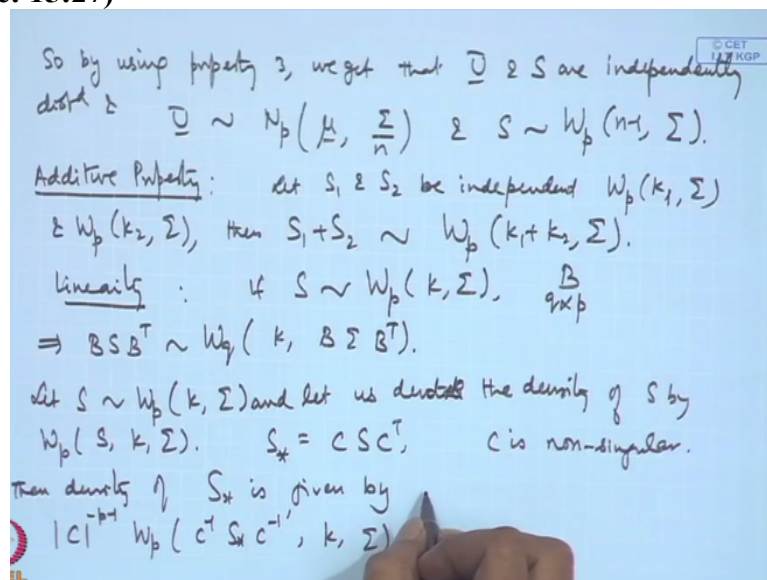 c. 15:27)
© CET
I.I.T. KGP
So by using property 3, we get that U̲ & S are independently
distd & U̲ ~ Np(μ̲, Σ/n) & S ~ Wp(n-1, Σ).
Additive Property: Let S₁ & S₂ be independent Wp(k₁, Σ)
& Wp(k₂, Σ), then S₁+S₂ ~ Wp(k₁+k₂, Σ).
Linearity : If S ~ Wp(k, Σ), B q×p
⇒ BSBᵀ ~ Wq(k, BΣBᵀ).
Let S ~ Wp(k, Σ) and let us denote the density of S by
Wp(S, k, Σ). S* = CSCᵀ, C is non-singular.
Then density of S* is given by
|C|⁻ᵖ⁻¹ Wp(C⁻¹ S* C⁻¹', k, Σ)